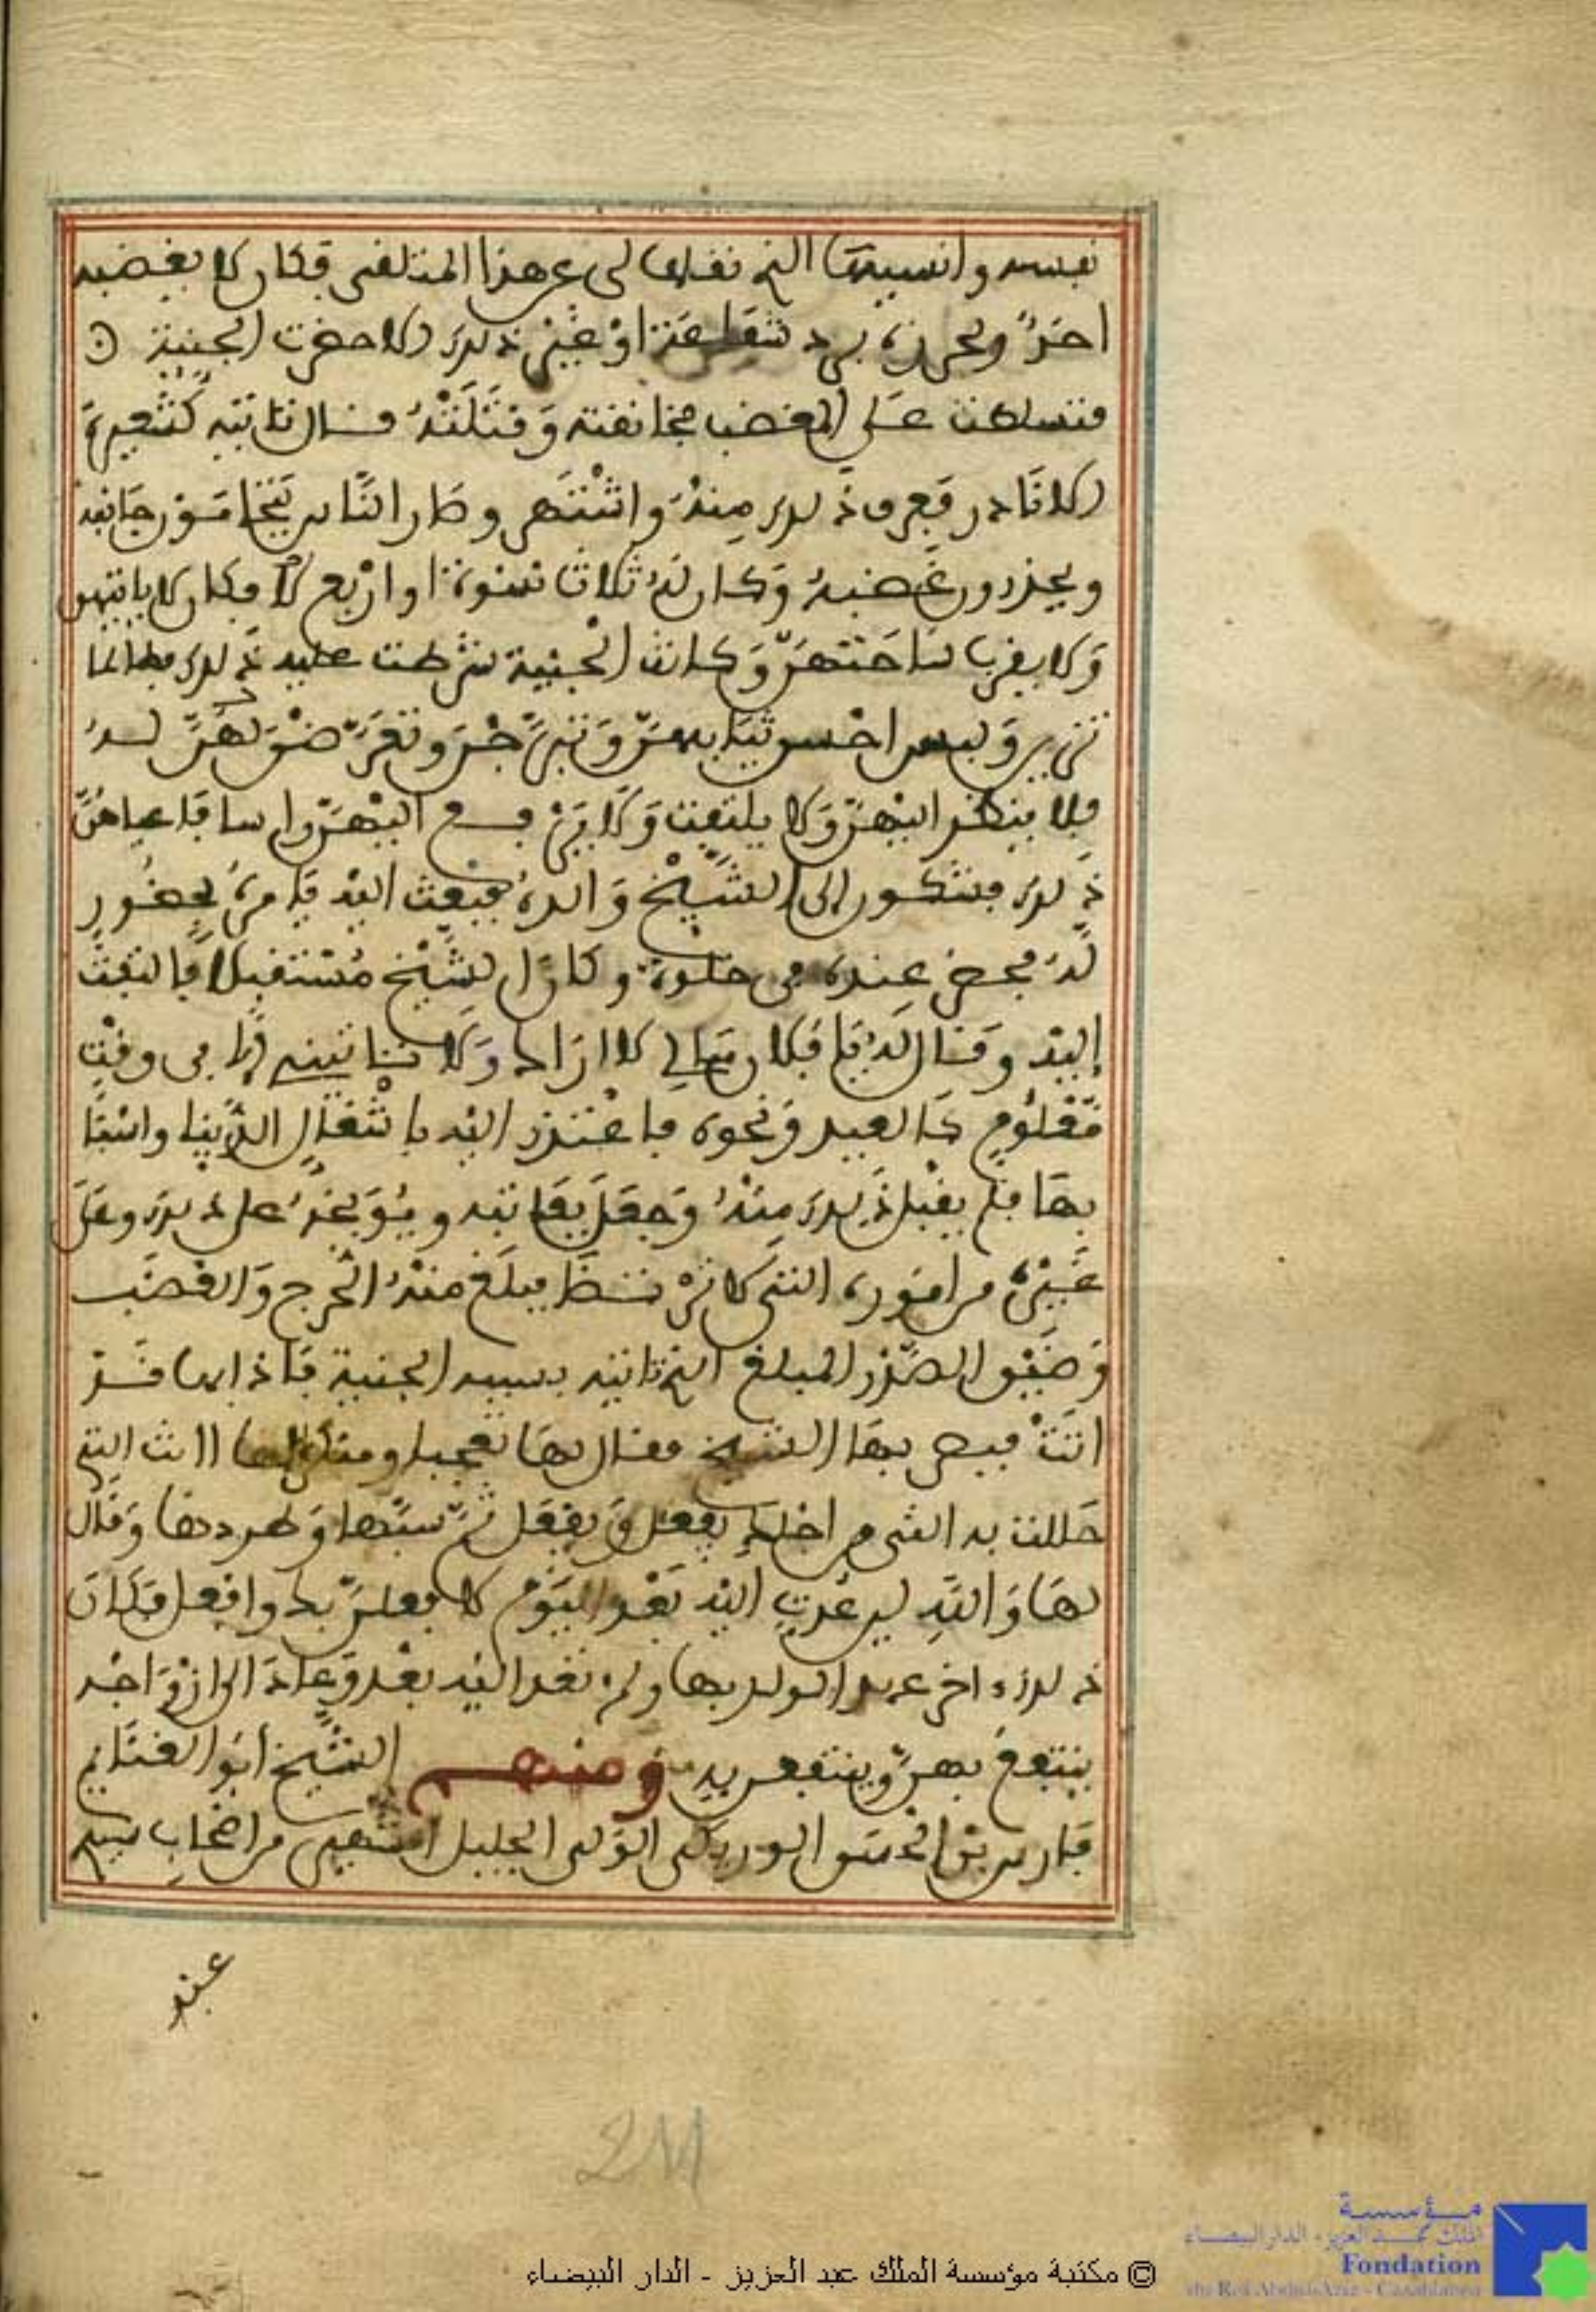 نفسه وانسيتها التي نقلها لي عن هذا المتلقى فكان لا يغضبه
احد ويحرن يريد شفاعة او غير ذلك الا حضرت الجنية
فتسلطت على المغضب فخانفته وقتلته فسال تانيه كشعيرة
الا نادر فعرف ذلك منه واشتهر وصار الناس يتحامون جانبه
ويحذرون غضبه وكان له ثلاث نسوة او اربع لا وكان لا ياتيهن
ولا يقرب ساحتهن وكانت الجنية شرطت عليه ذلك فطالما
تزين ولبس احسن ثيابهن وتبرجن وتعرضن له
فلا ينظر اليهن ولا يلتفت ولا يرجع اليهن راسا فاعياهن
ذلك فيشكون الى الشيخ والده فبعث اليه يامره بحضور
له فحضر عنده في خلوة وكان الشيخ مستقبلا فالتفت
إليه وقال له يا فلان مالي لا اراك ولا تاتيني الا في وقت
معلوم كالعيد ونحوه فاعتذر اليه باشغال الدنيا واسبا
بها فلم يقبل ذلك منه وجعل يعاتبه ويوبخه على ذلك وعلى
غيره من اموره التي لا ترضى فبلغ منه الحرج والغضب
وضيق الصدر المبلغ الذي تاتيه بسببه الجنية فاذا بها قد
اتت فبصر بها الشيخ فقال لها تعجبا ومنكرا لها اانت التي
حللت به الشي من اجلك يفعل ويفعل ثم سبها وطردها وقال
لها والله لين عدت اليه بعد اليوم لافعلن بك وافعل فكان
ذلك ءاخر عهد الولد بها ولم تعد اليه بعد وعاد الى ازواجه
ينتفع بهن وينتفعن به ومنهم الشيخ ابو الغنائم
فارس بن الحسن الوريكي الولي الجليل الشهير من اصحاب سيد
عبد
211
© مكتبة مؤسسة الملك عبد العزيز - الدار البيضاء
مؤسسة
الملك عبد العزيز - الدار البيضاء
Fondation
du Roi Abdul-Aziz - Casablanca